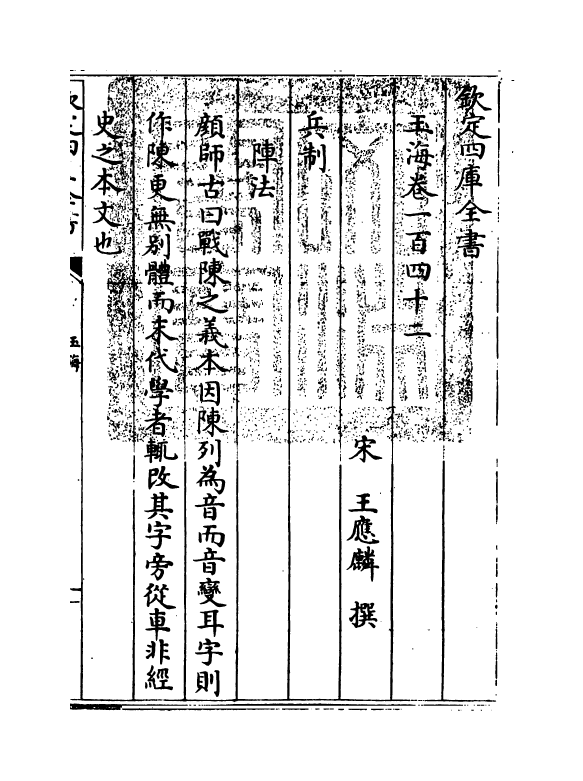 欽定四庫全書
玉海卷一百四十二
宋 王應麟 撰
兵制
陣法
顔師古曰戰陳之義本因陳列為音而音變耳字則
作陳更無别體而末代學者輒改其字旁從車非經
史之本文也
玉海